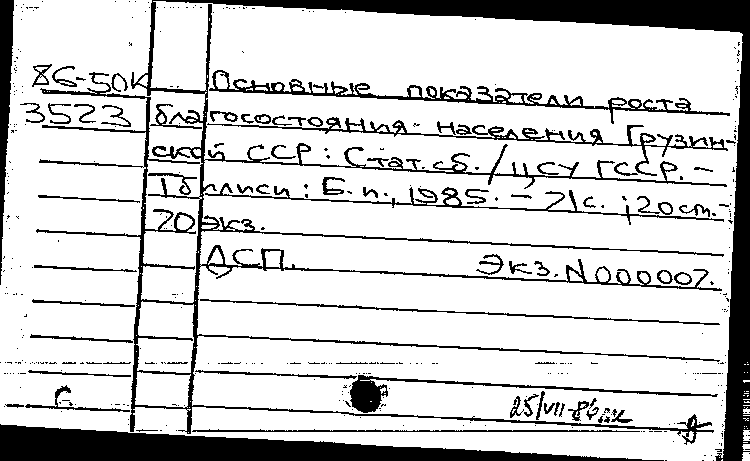 86-50К Основные показатели роста
3523 благосостояния населения Грузин-
ской ССР: Стат. сб. / ЦСУ ГССР. –
Тбилиси: Б. и., 1985. – 71с. ; 20см. –
70 экз.
ДСП. Экз. N 000007.
Б
25/VII-86